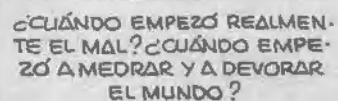 ¿CUÁNDO EMPEZÓ REALMEN-
TE EL MAL? ¿CUÁNDO EMPE-
ZÓ A MEDRAR Y A DEVORAR
EL MUNDO?